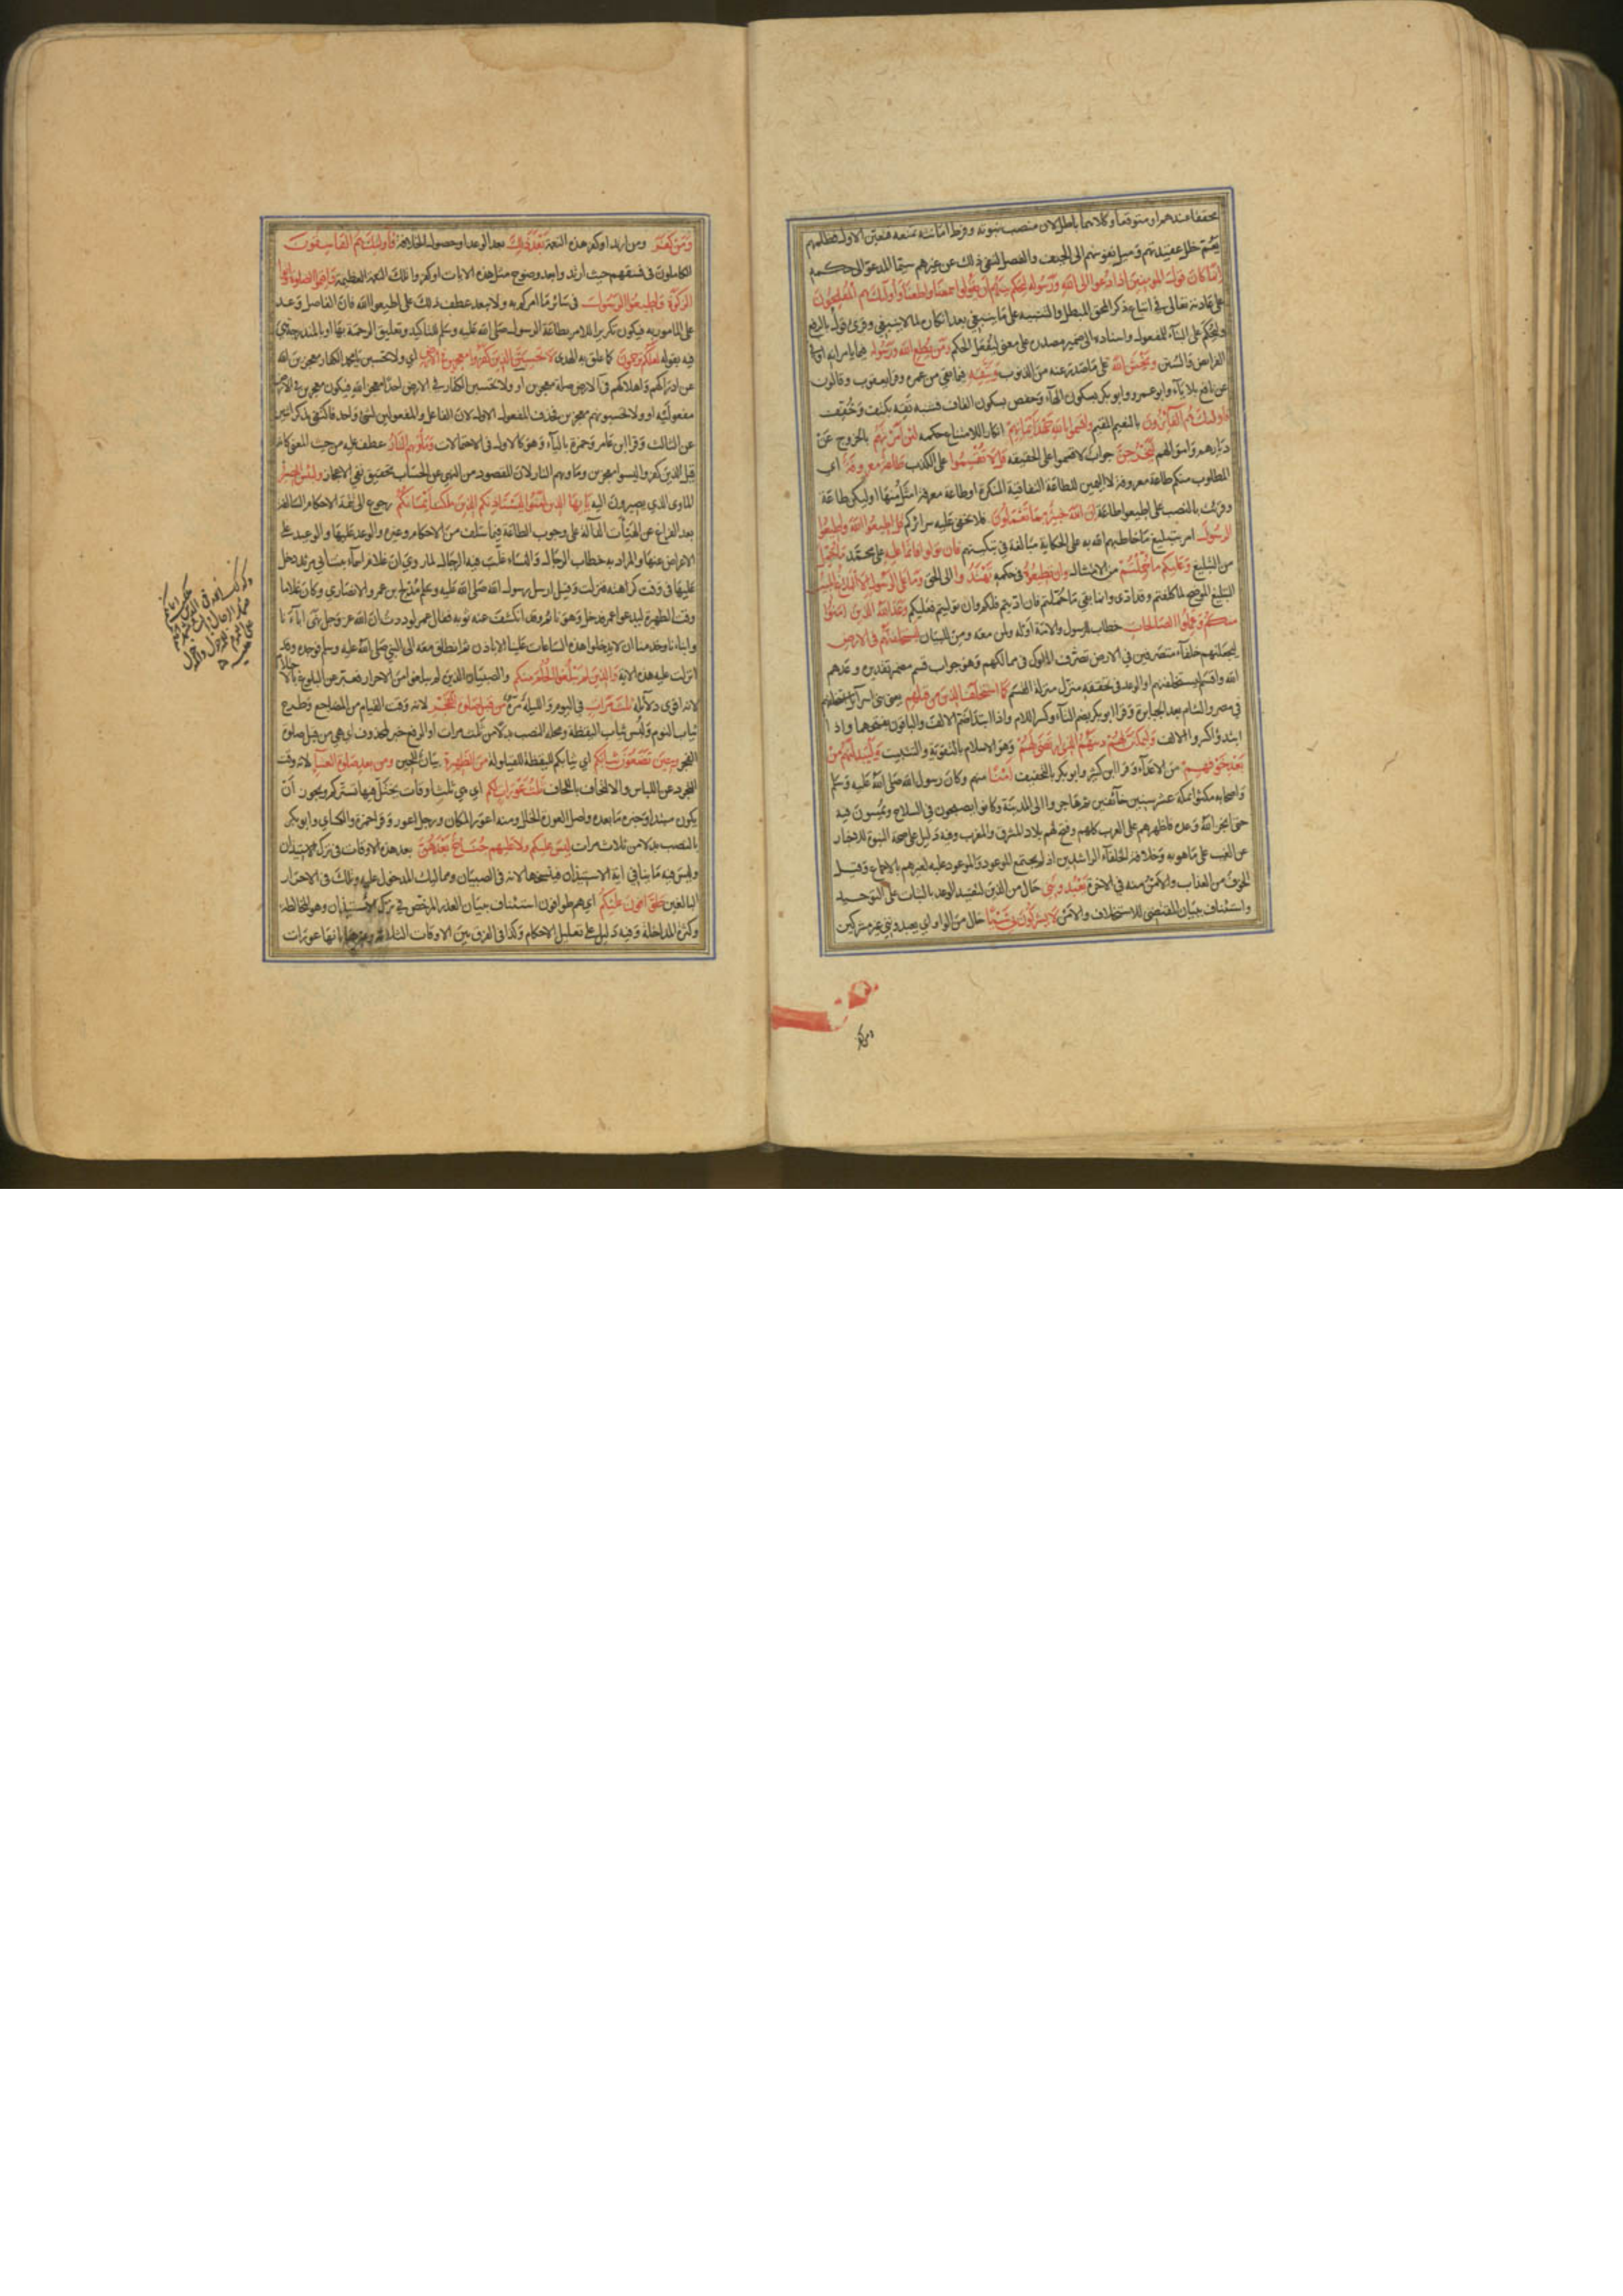 محققا عندهم او متوقعا وكلاهما باطل لان منصب نبوته وفرط امانته تمنعه فتعين الاول فظلمهم
يعم خلل عقيدتهم وميل نفوسهم الى الحيف والفصل لنفي ذلك عن غيرهم سيما المدعو الى حكمه
انما كان قول المؤمنين اذا دعوا الى الله ورسوله ليحكم بينهم ان يقولوا سمعنا واطعنا واولئك هم المفلحون
على عادته تعالى في اتباع ذكر المحق المبطل والتنبيه على ما ينبغي بعد انكار لما لا ينبغي وقرئ قول بالرفع
وليحكم على البناء للمفعول واسناده الى ضمير مصدره على معنى ليفعل الحكم ومن يطع الله ورسوله فيما يامرانه او في
الفرائض والسنن ويخش الله على ما صدر عنه من الذنوب ويتقه فيما بقي من عمره وقرا يعقوب وقالون
عن نافع بلا ياء وابو عمرو وابو بكر بسكون الهاء وحفص بسكون القاف فشبه تقه بكتف وخفف
فاولئك هم الفائزون بالنعيم المقيم واقسموا بالله جهد ايمانهم انكار للامتناع عن حكمه لئن امرتهم بالخروج عن
ديارهم واموالهم ليخرجن جواب لاقسموا على الحكاية قل لا تقسموا على الكذب طاعة معروفة اي
المطلوب منكم طاعة معروفة لا اليمين للطاعة النفاقية المنكرة او طاعة معروفة امثل منها او ليكن طاعة
وقرئت بالنصب على اطيعوا طاعة ان الله خبير بما تعملون فلا يخفى عليه سرائركم قل اطيعوا الله واطيعوا
الرسول امر بتبليغ ما خاطبهم الله به على الحكاية مبالغة في تبكيتهم فان تولوا فانما عليه على محمد ما حمل
من التبليغ وعليكم ما حملتم من الامتثال وان تطيعوه في حكمه تهتدوا الى الحق وما على الرسول الا البلاغ المبين
التبليغ الموضح لما كلفتم وقد ادى وانما بقي ما حملتم فان اديتم فلكم وان توليتم فعليكم وعد الله الذين امنوا
منكم وعملوا الصالحات خطاب للرسول والامة او له ولمن معه ومن للبيان ليستخلفنهم في الارض
ليجعلنهم خلفاء متصرفين في الارض تصرف الملوك في ممالكهم وهو جواب قسم مضمر تقديره وعدهم
الله واقسم ليستخلفنهم او الوعد في تحققه منزل منزلة القسم كما استخلف الذين من قبلهم يعني بني اسرائيل استخلفهم
في مصر والشام بعد الجبابرة وقرا ابو بكر بضم التاء وكسر اللام واذا ابتدا ضم الالف والباقون بفتحهما واذا
ابتدؤا كسروا الالف وليمكنن لهم دينهم الذي ارتضى لهم وهو الاسلام بالتقوية والتثبيت وليبدلنهم من
بعد خوفهم من الاعداء وقرا ابن كثير وابو بكر بالتخفيف امنا منهم وكان رسول الله صلى الله عليه وسلم
واصحابه مكثوا بمكة عشر سنين خائفين ثم هاجروا الى المدينة وكانوا يصبحون في السلاح ويمسون فيه
حتى انجز الله وعده فاظهرهم على العرب كلهم وفتح لهم بلاد المشرق والمغرب وفيه دليل على صحة النبوة للاخبار
عن الغيب على ما هو به وخلافة الخلفاء الراشدين اذ لم يجتمع الموعود والموعود عليه لغيرهم بالاجماع وقيل
الخوف من العذاب والامن منه في الاخرة يعبدونني حال من الذين لتقييد الوعد بالثبات على التوحيد
واستئناف ببيان المقتضي للاستخلاف والامن لا يشركون بي شيئا حال من الواو اي يعبدونني غير مشركين
ومن كفر
ومن كفر ومن ارتد او كفر هذه النعمة بعد ذلك بعد الوعد او حصول الخلافة فاولئك هم الفاسقون
الكاملون في فسقهم حيث ارتدوا بعد وضوح مثل هذه الايات او كفروا تلك النعمة العظيمة واقيموا الصلوة واتوا
الزكوة واطيعوا الرسول في سائر ما امركم به ولا يبعد عطف ذلك على اطيعوا الله فان الفاصل وعد
على المامور به فيكون تكرير الامر بطاعة الرسول صلى الله عليه وسلم للتاكيد وتعليق الرحمة بها او بالمندرجة هي
فيه بقوله لعلكم ترحمون كما علق به الهدى لا تحسبن الذين كفروا معجزين في الارض اي ولا تحسبن يا محمد الكفار معجزين الله
عن ادراكهم واهلاكهم وفي الارض صلة معجزين او ولا تحسبن الكفار في الارض احدا معجز الله فيكون معجزين في الارض
مفعوليه او ولا تحسبونهم معجزين فحذف المفعول الاول لان الفاعل والمفعولين لشئ واحد فاكتفي بذكر اثنين
عن الثالث وقرا ابن عامر وحمزة بالياء وهو كالاول في الاحتمالات وماويهم النار عطف عليه من حيث المعنى كانه
قيل الذين كفروا ليسوا معجزين وماويهم النار لان المقصود من النهي عن الحسبان تحقيق نفي الاعجاز ولبئس المصير
الماوى الذي يصيرون اليه يا ايها الذين امنوا ليستاذنكم الذين ملكت ايمانكم رجوع الى تتمة الاحكام السالفة
بعد الفراغ عن الهيات الدالة على وجوب الطاعة فيما سلف من الاحكام وغيره والوعد عليها والوعيد على
الاعراض عنها والمراد به خطاب الرجال والنساء غلب فيه الرجال لما روي ان غلام اسماء بنت ابي مرثد دخل
عليها في وقت كراهته فنزلت وقيل ارسل رسول الله صلى الله عليه وسلم مدلج بن عمرو الانصاري وكان غلاما
وقت الظهيرة ليدعو عمر فدخل وهو نائم وقد انكشف عنه ثوبه فقال عمر لوددت ان الله عز وجل نهى اباءنا
وابناءنا وخدمنا ان لا يدخلوا هذه الساعات علينا الا باذن ثم انطلق معه الى النبي صلى الله عليه وسلم فوجده وقد
انزلت عليه هذه الاية والذين لم يبلغوا الحلم منكم والصبيان الذين لم يبلغوا من الاحرار فعبر عن البلوغ بالاحتلام
لانه اقوى دلائله ثلث مرات في اليوم والليلة مرة من قبل صلوة الفجر لانه وقت القيام من المضاجع وطرح
ثياب النوم ولبس ثياب اليقظة ومحله النصب بدلا من ثلث مرات او الرفع خبر المحذوف اي هي من قبل صلوة
الفجر وحين تضعون ثيابكم اي ثيابكم لليقظة للقيلولة من الظهيرة بيان للحين ومن بعد صلوة العشاء لانه وقت
التجرد عن اللباس والالتحاف باللحاف ثلث عورات لكم اي هي ثلث اوقات يختل فيها تستركم ويجوز ان
يكون مبتدا وخبره ما بعده واصل العورة الخلل ومنه اعور المكان ورجل اعور وقرا حمزة والكسائي وابو بكر
بالنصب بدلا من ثلاث مرات ليس عليكم ولا عليهم جناح بعدهن بعد هذه الاوقات في ترك الاستيذان
وليس فيه ما ينافي اية الاستيذان فينسخها لانه في الصبيان ومماليك المدخول عليه وتلك في الاحرار
البالغين طوافون عليكم اي هم طوافون استئناف ببيان العذر المرخص في ترك الاستيذان وهو المخالطة
وكثرة المداخلة وفيه دليل على تعليل الاحكام وكذا في الفرق بين الاوقات الثلاثة وغيرها بانها عورات